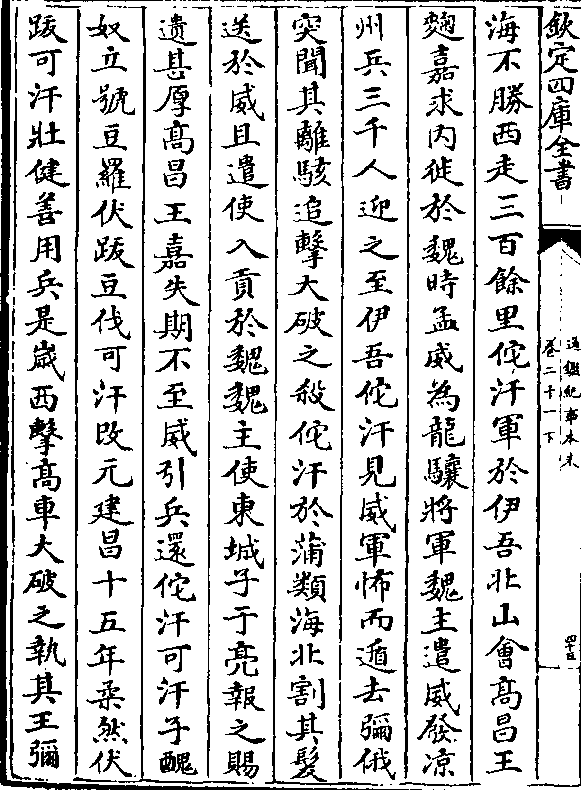 欽定四庫全書
通鑑紀事本末
卷二十一下
海不勝西走三百餘里佗汗軍於伊吾北山會髙昌王
麴嘉求内徙於魏時孟威為龍驤將軍魏主遣威發凉
州兵三千人迎之至伊吾佗汗見威軍怖而遁去彌俄
突聞其離駭追擊大破之殺佗汗於蒲類海北割其髮
送於威且遣使入貢於魏魏主使東城子于亮報之賜
遺甚厚髙昌王嘉失期不至威引兵還佗汗可汗子醜
奴立號豆羅伏跋豆伐可汗改元建昌十五年柔然伏
跋可汗壯健善用兵是嵗西擊髙車大破之執其王彌